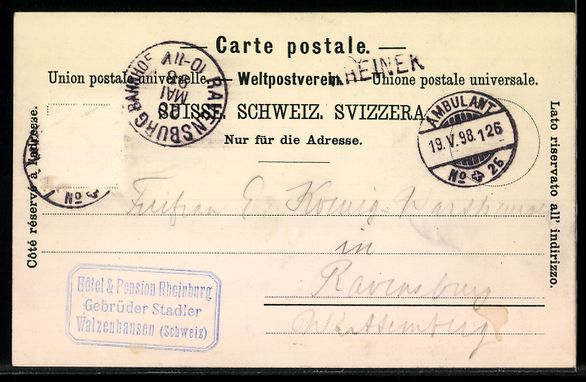 Carte postale.
Union postale universelle. — Weltpostverein. — Unione postale universale.
RHEINER
SUISSE. SCHWEIZ. SVIZZERA.
Nur für die Adresse.
RAVENSBURG BAHNHOF
MAI
98
AMBULANT
19.V.98.126
No 26
No
Côté réservé à l'adresse.
Lato riservato all' indirizzo.
in
Ravensburg
Württemberg
Hôtel & Pension Rheinburg
Gebrüder Stadler
Walzenhausen (Schweiz)